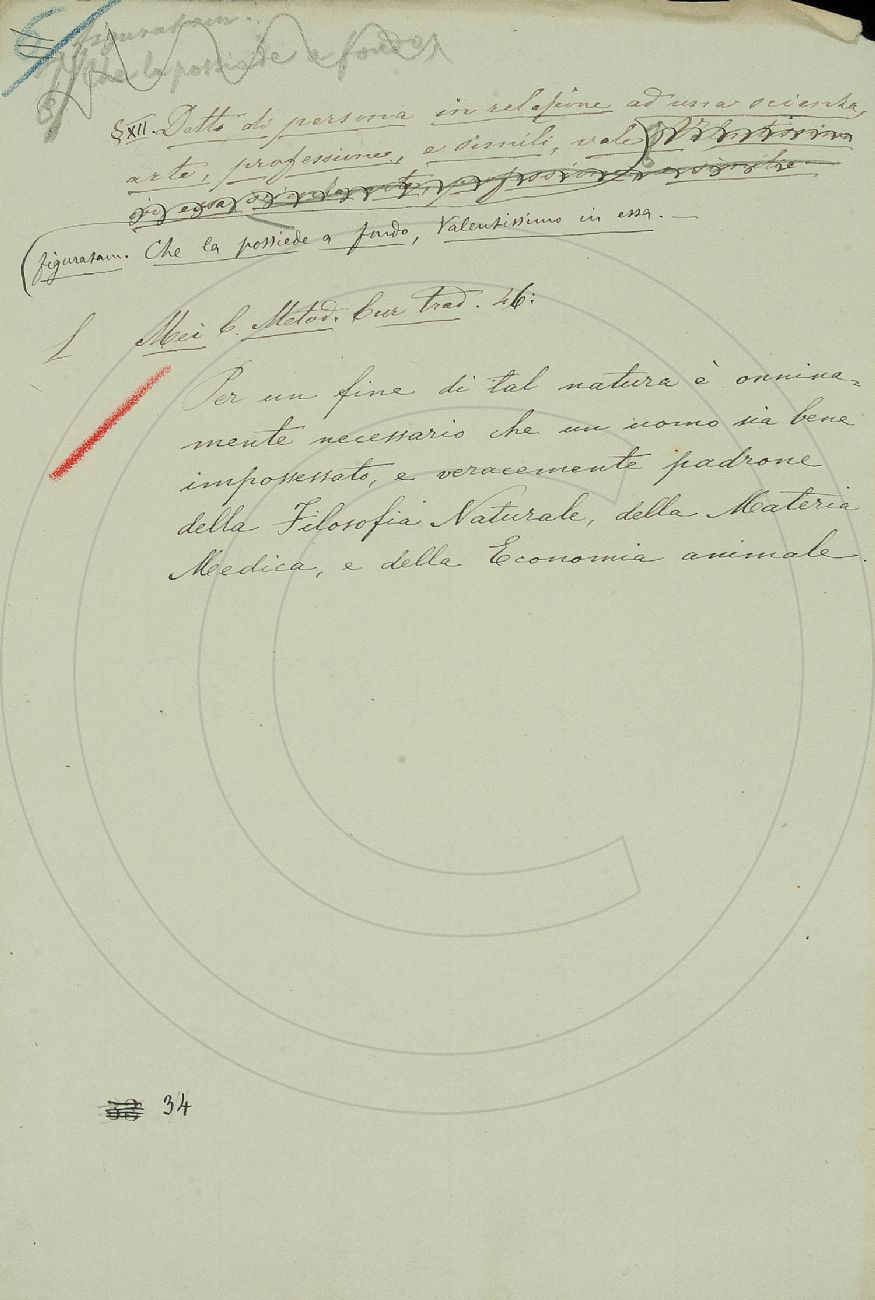 figuratam.
Che la possiede a fondo,
§ XII. Detto di persona in relazione ad una scienza,
arte, professione, e simili, vale Valentissimo
in essa
figuratam. Che la possiede a fondo, Valentissimo in essa. —
Mei C. Metod. Cur. trad. 46:
Per un fine di tal natura è onnina=
mente necessario che un uomo sia bene
impossessato, e veracemente padrone
della Filosofia Naturale, della Materia
Medica, e della Economia animale.
34